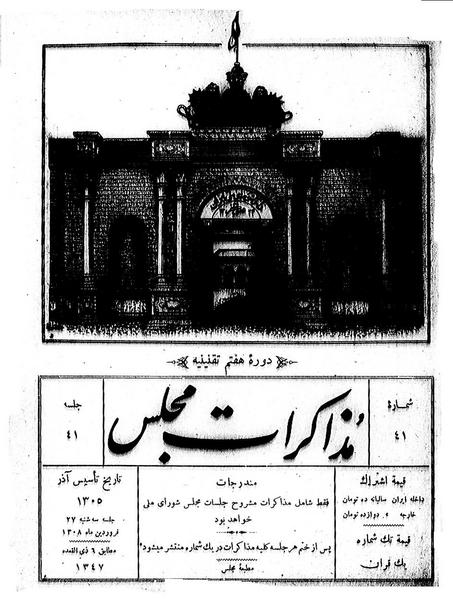 دورهٔ هفتم تقنینیه
مذاکرات مجلس
شمارهٔ
۴۱
جلسه
۴۱
قیمة اشتراك
داخله ایران سالیانه ده تومان
خارجه » دوازده تومان
قیمة تك شماره
يك قران
مندرجات
فقط شامل مذاکرات مشروح جلسات مجلس شورای ملی
خواهد بود
پس از ختم هر جلسه کلیه مذاکرات در يك شماره منتشر میشود
مطبعهٔ مجلس
تاریخ تأسیس آذر
۱۳۰۵
جلسه سه شنبه ۲۷
فروردین ماه ۱۳۰۸
مطابق ۶ ذی القعده
۱۳۴۷